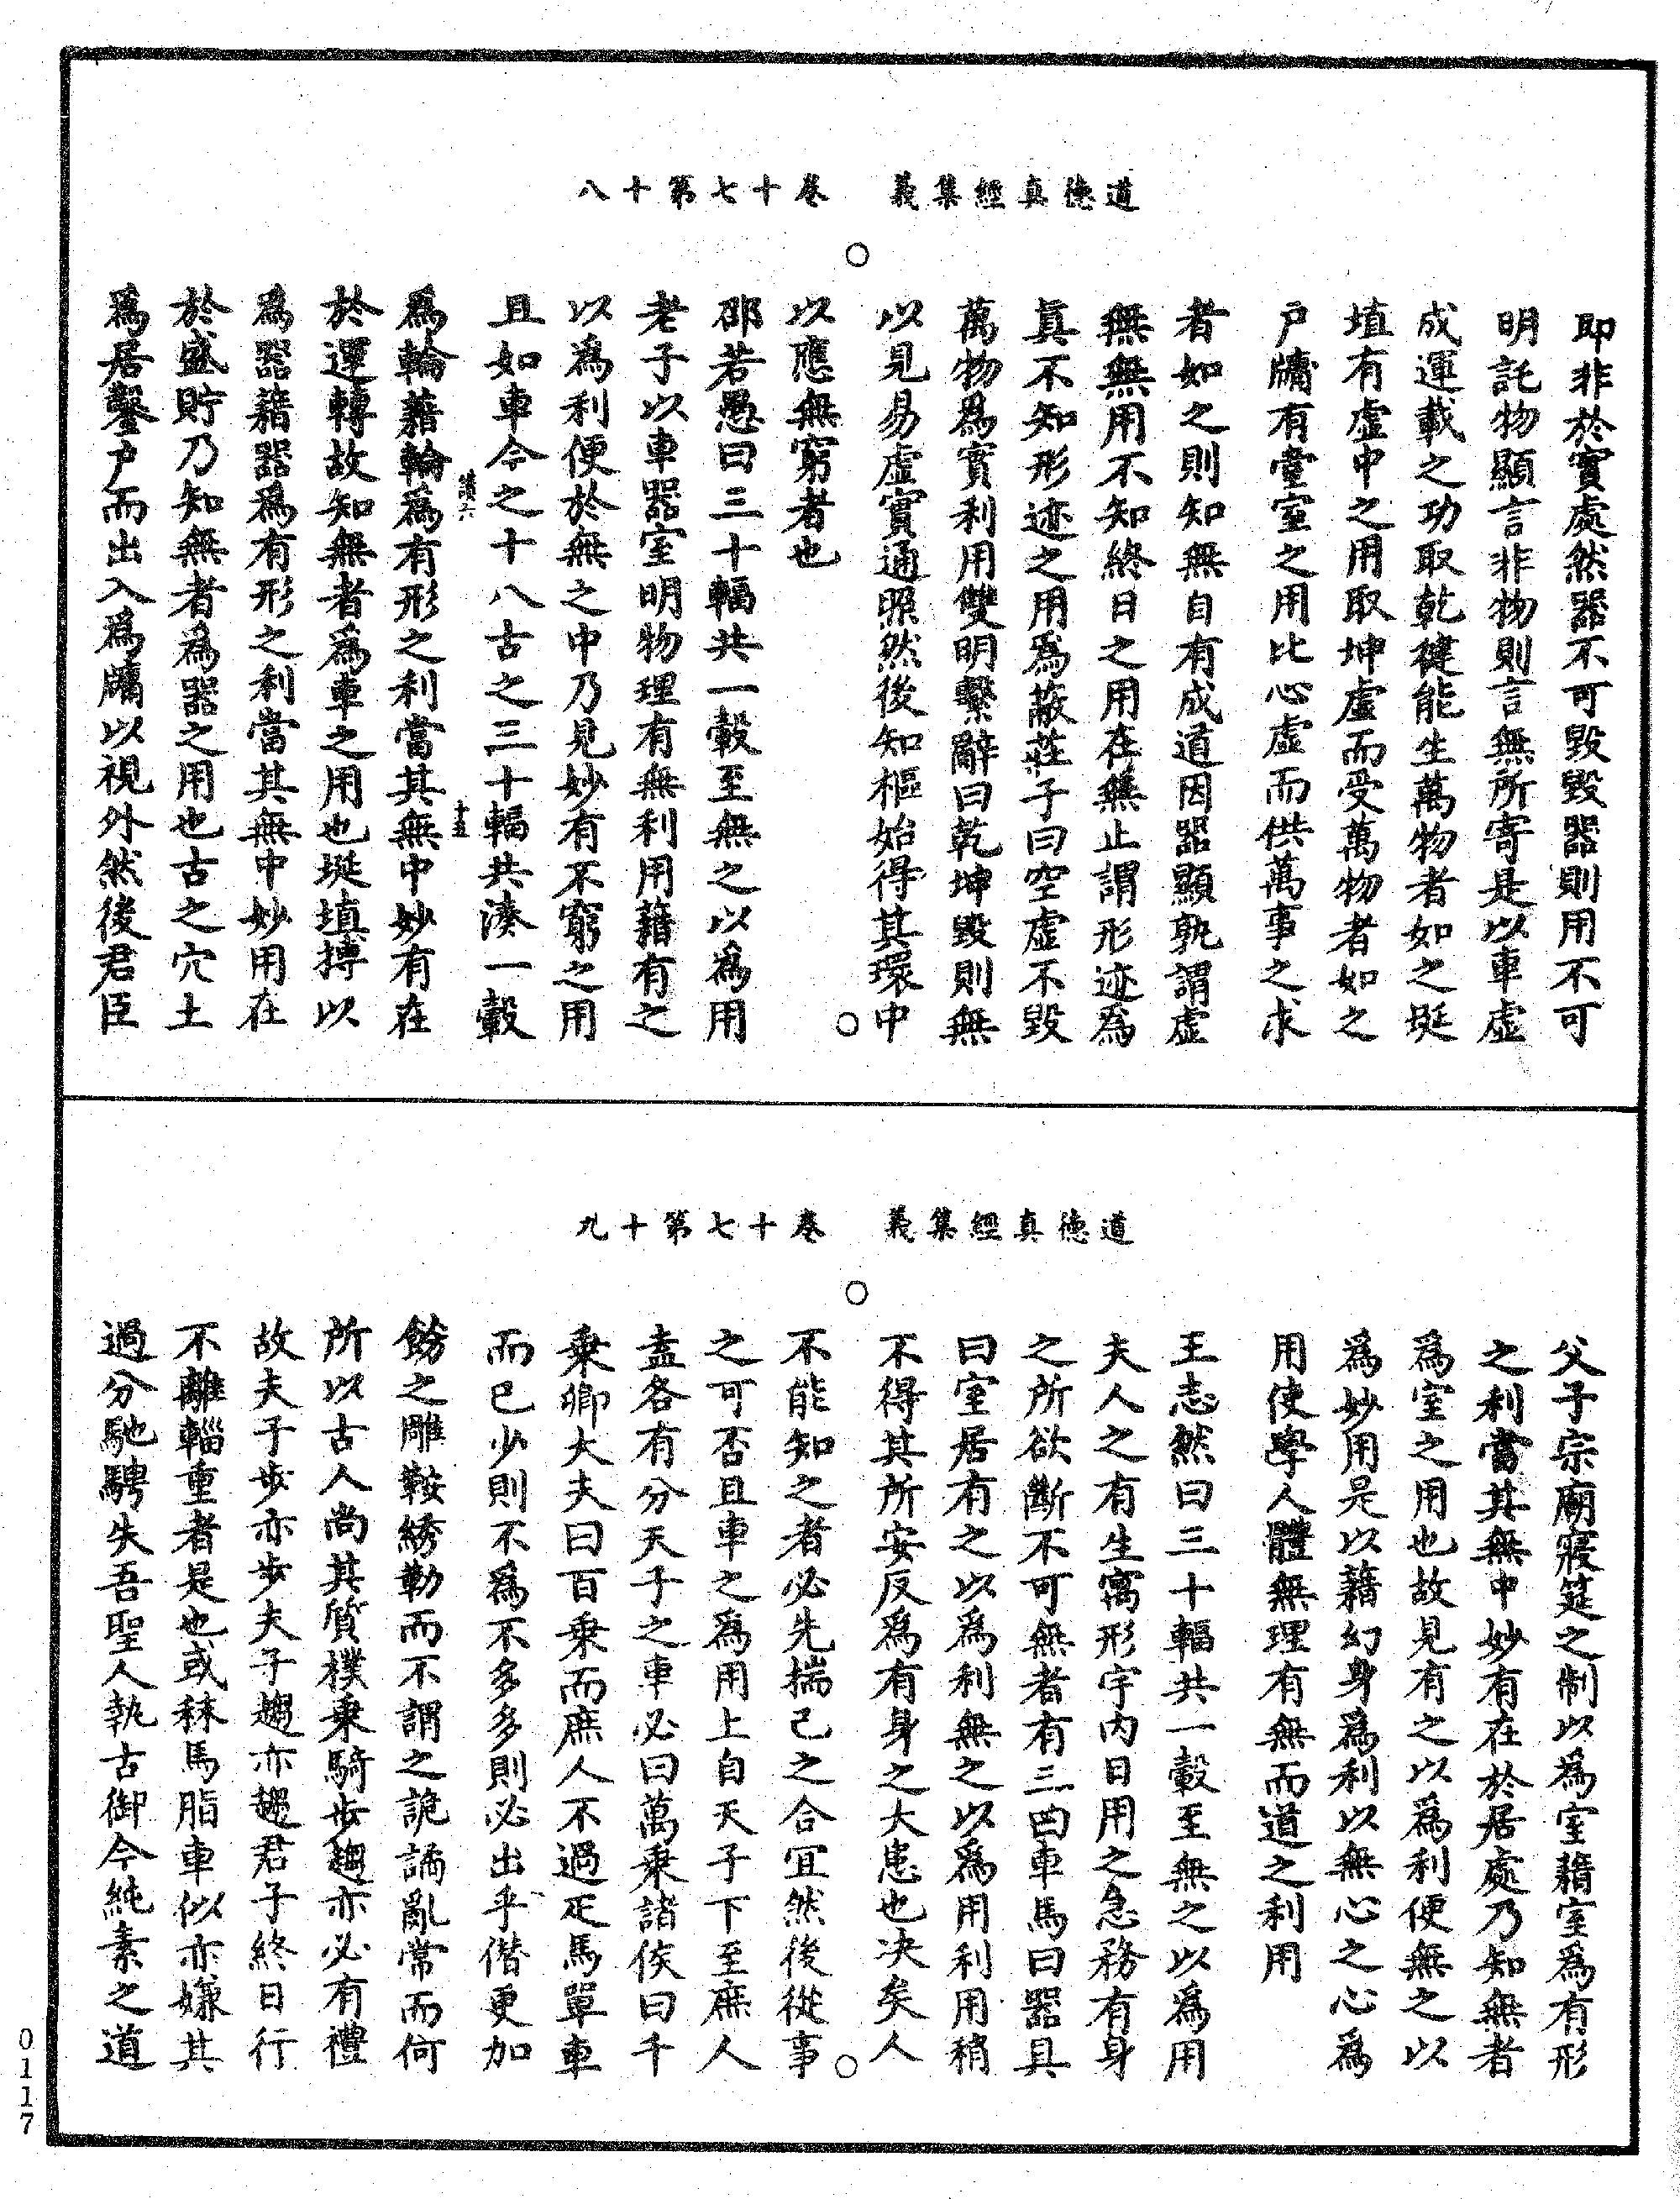 道德真經集義　卷十七第十八
即非於實處然器不可毀毀器則用不可
明託物顯言非物則言無所寄是以車虛
成運載之功取乾健能生萬物者如之埏
埴有虛中之用取坤虛而受萬物者如之
戶牖有堂室之用比心虛而供萬事之求
者如之則知無自有成道因器顯孰謂虛
無無用不知終日之用在無止謂形迹為
真不知形迹之用爲蔽莊子曰空虛不毀
萬物爲實利用雙明繫辭曰乾坤毀則無
以見易虛實通照然後知樞始得其環中
以應無窮者也
邵若愚曰三十輻共一轂至無之以爲用
老子以車器室明物理有無利用藉有之
以爲利便於無之中乃見妙有不窮之用
且如車今之十八古之三十輻共湊一轂
爲輪藉輪爲有形之利當其無中妙有在
於運轉故知無者爲車之用也埏埴摶以
爲器藉器爲有形之利當其無中妙用在
於盛貯乃知無者爲器之用也古之穴土
爲居鑿戶而出入爲牖以視外然後君臣
讃六
十五
道德真經集義　卷十七第十九
父子宗廟寢筵之制以爲室藉室爲有形
之利當其無中妙有在於居處乃知無者
爲室之用也故見有之以爲利便無之以
爲妙用是以藉幻身爲利以無心之心爲
用使學人體無理有無而道之利用
王志然曰三十輻共一轂至無之以爲用
夫人之有生寓形宇内日用之急務有身
之所欲斷不可無者有三曰車馬曰器具
曰室居有之以爲利無之以爲用利用稍
不得其所安反爲有身之大患也决矣人
不能知之者必先揣己之合宜然後從事
之可否且車之爲用上自天子下至庶人
盍各有分天子之車必曰萬乘諸侯曰千
乗卿大夫曰百乗而庶人不過疋馬單車
而已少則不爲不多多則必出乎僭更加
餝之雕鞍綉勒而不謂之詭譎亂常而何
所以古人尚其質樸乗騎步趨亦必有禮
故夫子步亦步夫子趨亦趨君子終日行
不離輜重者是也或秣馬脂車似亦嫌其
過分馳騁失吾聖人執古御今純素之道
0117